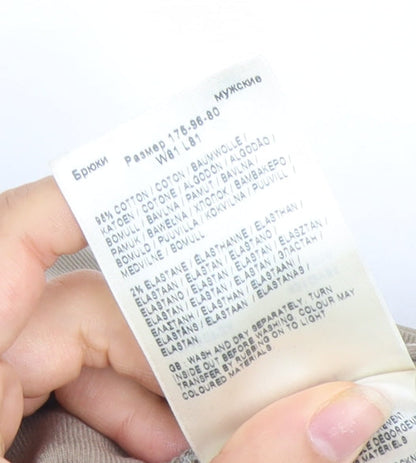 Брюки Размер 176-96-80 мужские
W81 L81
98% COTTON / COTON / BAUMWOLLE /
KATOEN / COTONE / ALGODÓN / ALGODÃO /
BOMULL / BAVLNA / PAMUT / BAVLNA /
PAMUK / BAWEŁNA / ХЛОПОК / BAMBAKEPO /
BOMULD / PUUVILLA / KOMVILNA / PUUVILL /
MEDVILNĖ / BOMULL
2% ELASTANE / ELASTHANNE / ELASTHAN /
ELASTAAN / ELASTAN / ELASTANO /
ELASTANO / ELASTAN / ELASZTÁN /
ELASTAN / ELASTAN / ЭЛАСТАН /
ΕΛΑΣΤΑΝΗ / ELASTHAN / ELASTAANI /
ELASTĀNS / ELASTAAN / ELASTANAS /
ELASTAN
GB: WASH AND DRY SEPARATELY. TURN
INSIDE OUT BEFORE WASHING. COLOUR MAY
TRANSFER BY RUBBING ON TO LIGHT
COLOURED MATERIALS